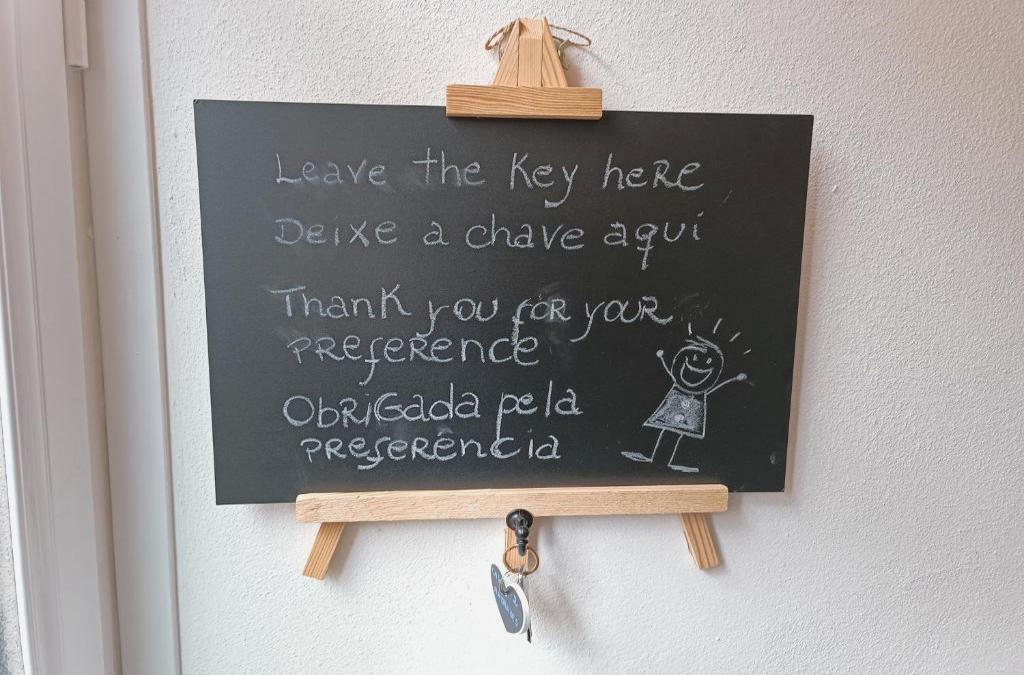 Leave the Key here
Deixe a chave aqui
Thank you for your
preference
Obrigada pela
preferência